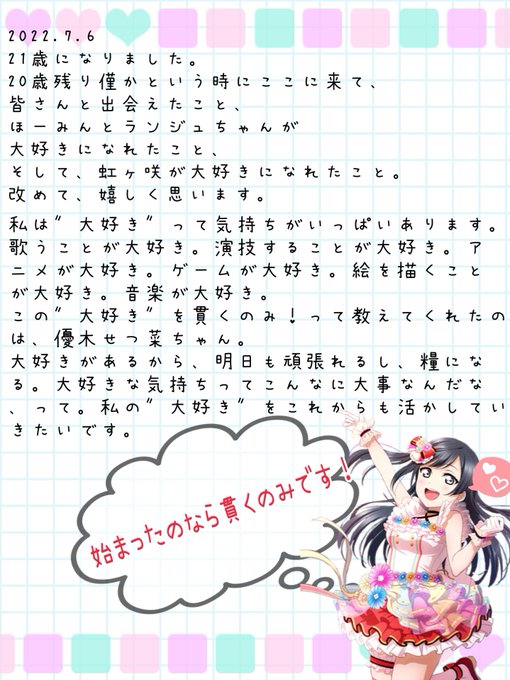 2022.7.6
21歳になりました。
20歳残り僅かという時にここに来て、
皆さんと出会えたこと、
ほーみんとランジュちゃんが
大好きになれたこと、
そして、虹ヶ咲が大好きになれたこと。
改めて、嬉しく思います。
私は"大好き"って気持ちがいっぱいあります。
歌うことが大好き。演技することが大好き。ア
ニメが大好き。ゲームが大好き。絵を描くこと
が大好き。音楽が大好き。
この"大好き"を貫くのみ！って教えてくれたの
は、優木せつ菜ちゃん。
大好きがあるから、明日も頑張れるし、糧にな
る。大好きな気持ちってこんなに大事なんだな
、って。私の"大好き"をこれからも活かしてい
きたいです。
始まったのなら貫くのみです！